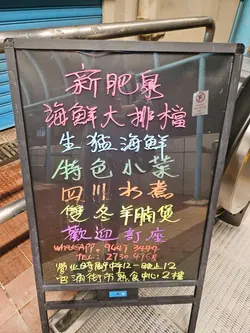 新肥泉
海鮮大排檔
生猛海鮮
特色小菜
四川水煮
雙冬羊腩煲
歡迎訂座
WHATSAPP: 9647 3440
TEL: 2730 4958
營業時間中午12-晚上12
街市熟食中心2樓